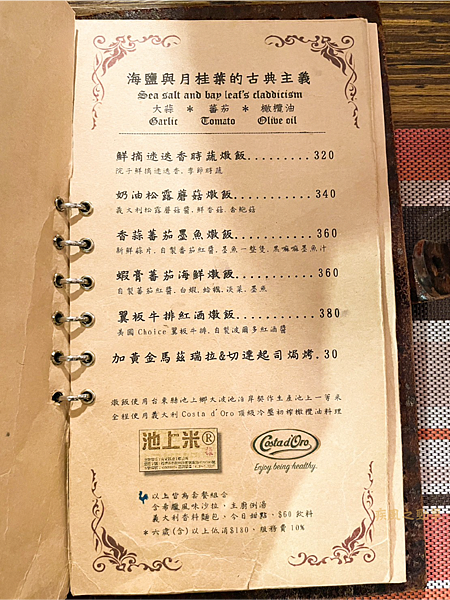 海鹽與月桂葉的古典主義
Sea salt and bay leaf's claddicism
大蒜 * 蕃茄 * 橄欖油
Garlic Tomato Olive oil
鮮摘迷迭香時蔬燉飯..........320
院子鮮摘迷迭香.季節時蔬
奶油松露蘑菇燉飯............340
義大利松露蘑菇醬.鮮香菇.杏鮑菇
香蒜蕃茄墨魚燉飯............360
新鮮蒜片.自製蕃茄紅醬.墨魚一整隻.黑嘛嘛墨魚汁
蝦膏蕃茄海鮮燉飯............360
自製蕃茄紅醬.白蝦.蛤蠣.淡菜.墨魚
翼板牛排紅酒燉飯............380
美國Choice翼板牛排.自製波爾多紅酒醬
加黃金馬茲瑞拉&切達起司焗烤.30
燉飯使用台東縣池上鄉大波池沿岸契作生產池上一等米
全程使用義大利Costa d'Oro頂級冷壓初榨橄欖油料理
池上米®
Costa d'Oro
Enjoy being healthy.
以上皆為套餐組合
含希臘風味沙拉，主廚例湯
義大利香料麵包，今日甜點，$60飲料
*六歲(含)以上低消$180，服務費10%